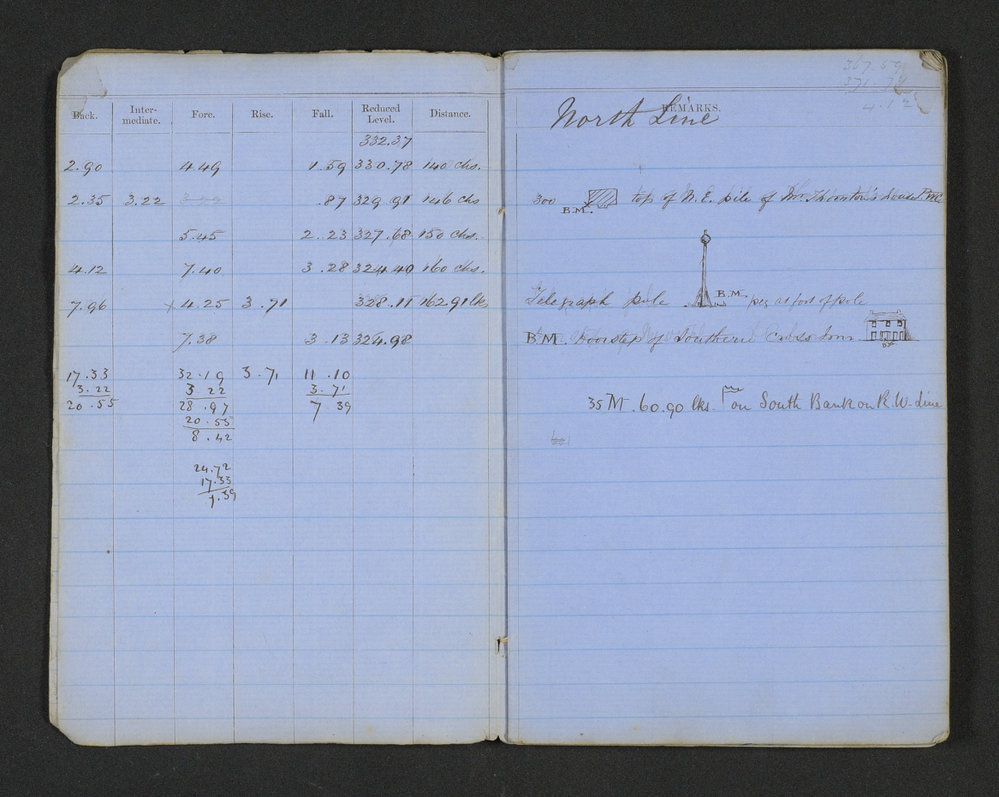 Back. Inter-mediate. Fore. Rise. Fall. Reduced Level. Distance.
332.37
2.90 4.49 1.59 330.78 140 chs.
2.35 3.22 .87 329.91 146 chs
5.45 2.23 327.68 150 chs.
4.12 7.40 3.28 324.40 160 chs.
7.96 x 4.25 3.71 328.11 162.91 lks
7.38 3.13 324.98
17.33 32.19 3.71 11.10
3.22 3 22 3.71
20.55 28.97 7.39
20.55
8.42
24.72
17.33
7.39
367.59
371.71
4.12
REMARKS.
North Line
300 B.M. top of N.E. pile of Mr Thornton's house
Telegraph pole B.M. peg at foot of pole
B.M. Doorstep of Southern
B.M
35 M. 60.90 lks. on South Bank on R.W. Line